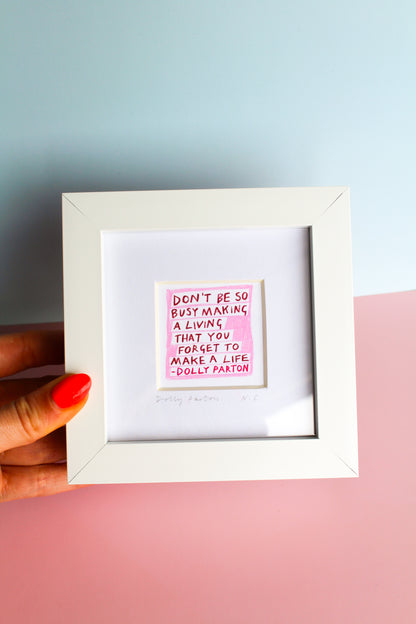 DON'T BE SO
BUSY MAKING
A LIVING
THAT YOU
FORGET TO
MAKE A LIFE
-DOLLY PARTON
Dolly Parton. N.G